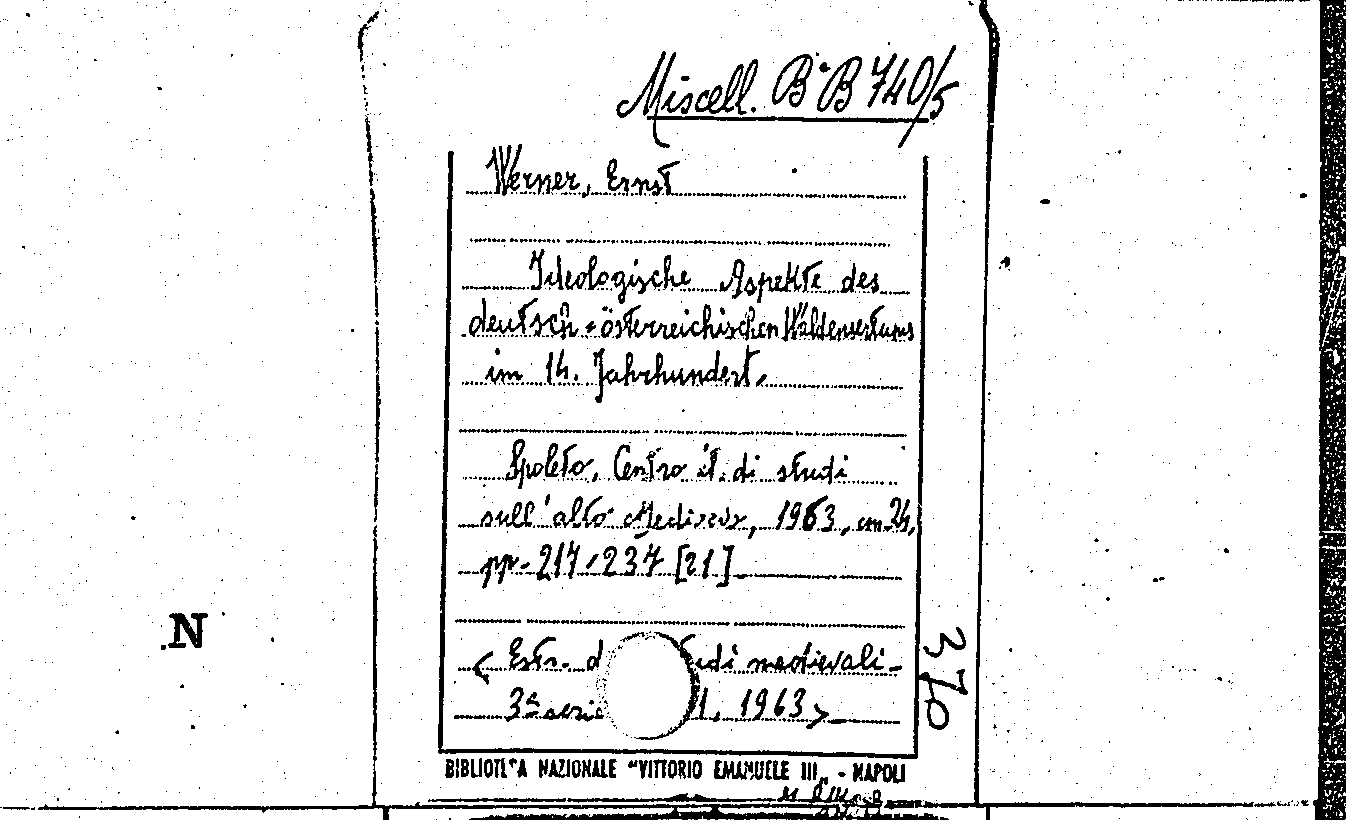 Miscell. B. B 740/5
Werner, Ernst
Ideologische Aspekte des
deutsch-österreichischen Waldensertums
im 14. Jahrhundert.
Spoleto, Centro it. di studi
sull'alto Medioevo, 1963, cm 24,
pp. 217-237 [21]
< Estr. d udi medievali-
3ª serie 1, 1963 >
370
N
BIBLIOTECA NAZIONALE "VITTORIO EMANUELE III" - NAPOLI